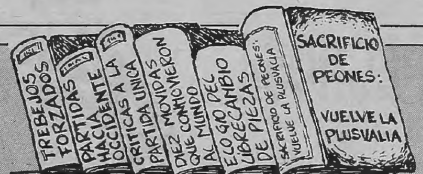 TREBEJOS
FORZADOS
PARTIDA
HACIA
OCCIDENTE
CRITICAS A LA
PARTIDA UNICA
DIEZ MOVIDAS
QUE CONMOVIERON
AL MUNDO
ELOGIO DEL
LIBRECAMBIO
DE PIEZAS
SACRIFICIO DE PEONES:
VUELVE LA PLUSVALIA
SACRIFICIO
DE
PEONES:
VUELVE LA
PLUSVALIA